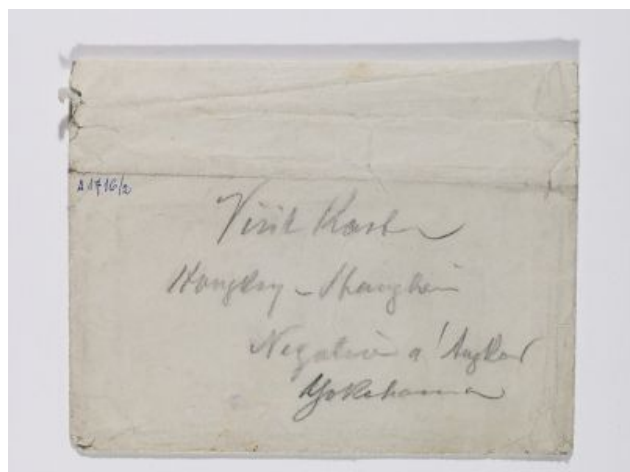 A 1716/2
Visit
Hongkong – Shanghai
Negative a' Angkor
Yokohama